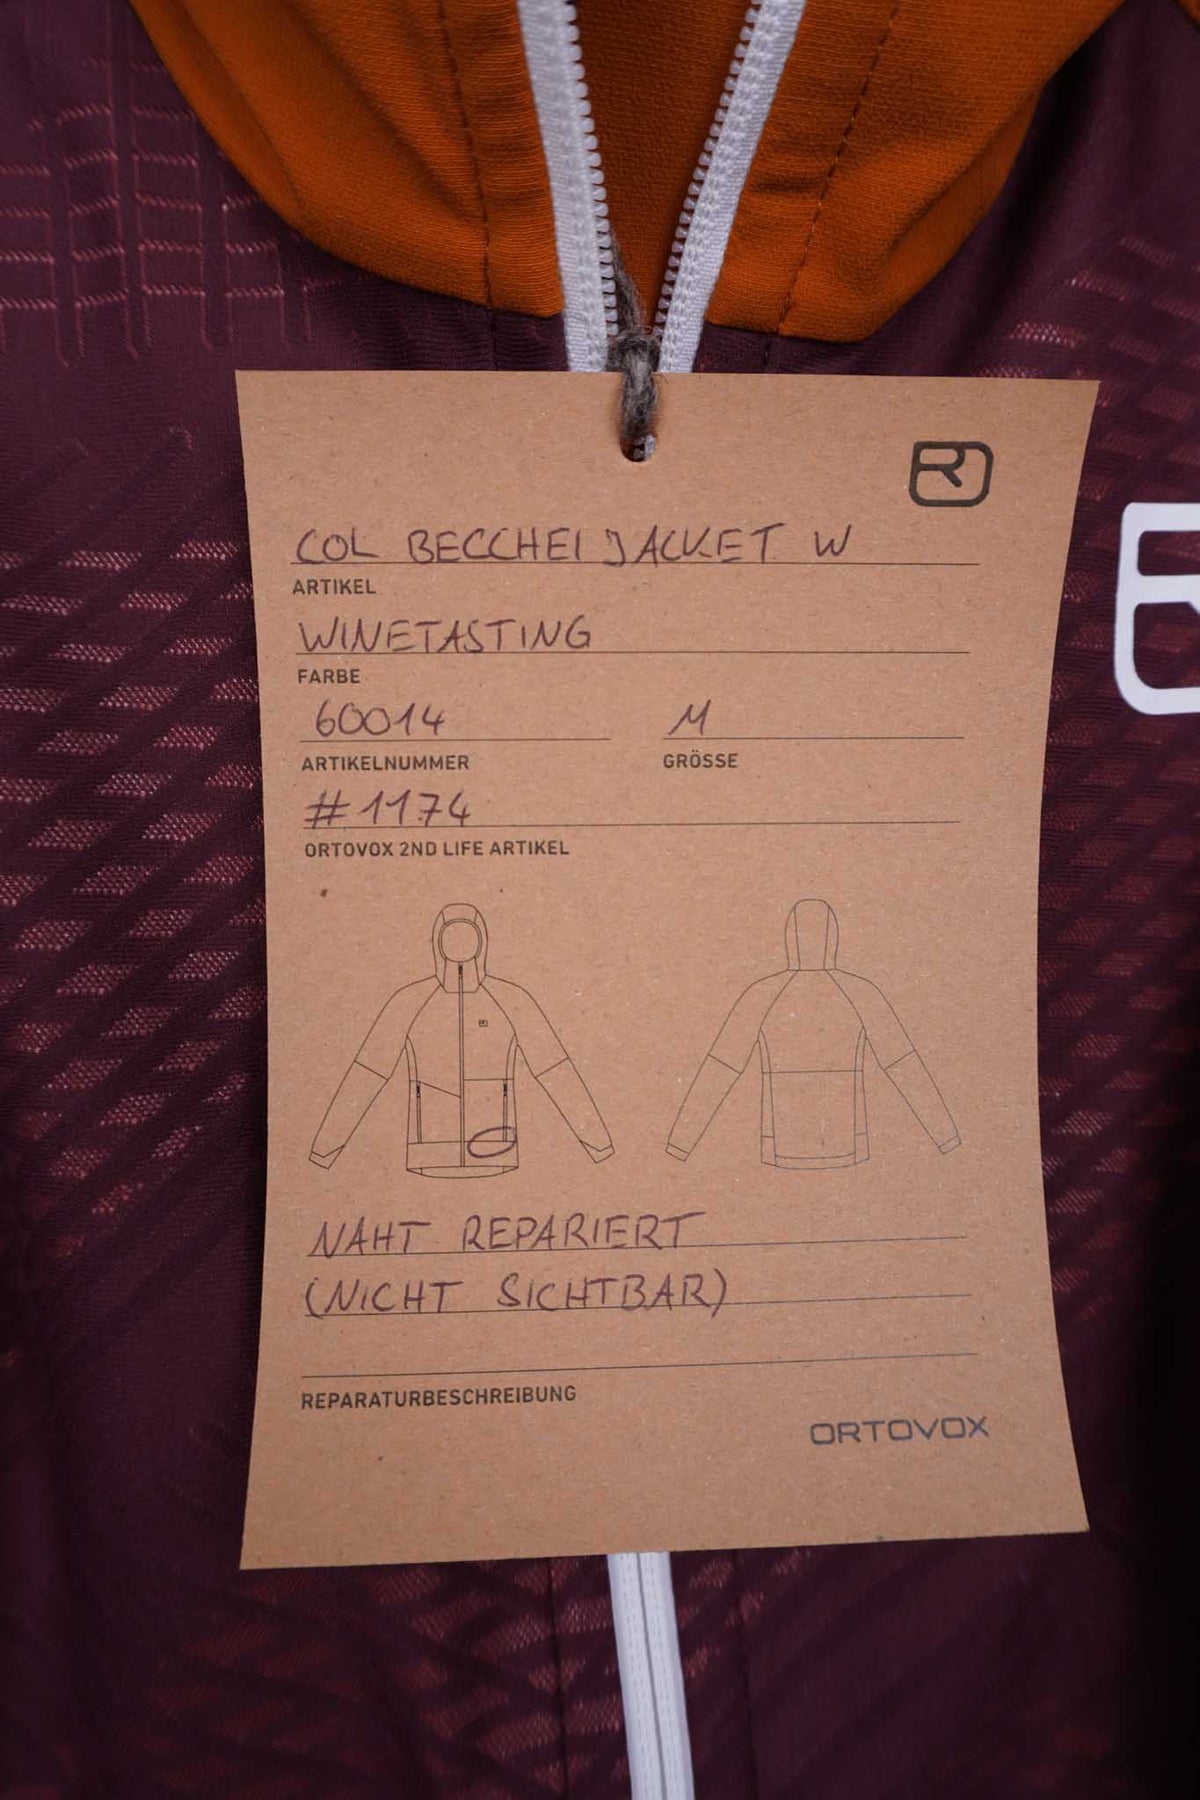 COL BECCHEI JACKET W
ARTIKEL
WINETASTING
FARBE
60014 M
ARTIKELNUMMER GRÖSSE
#1174
ORTOVOX 2ND LIFE ARTIKEL
NAHT REPARIERT
(NICHT SICHTBAR)
REPARATURBESCHREIBUNG
ORTOVOX